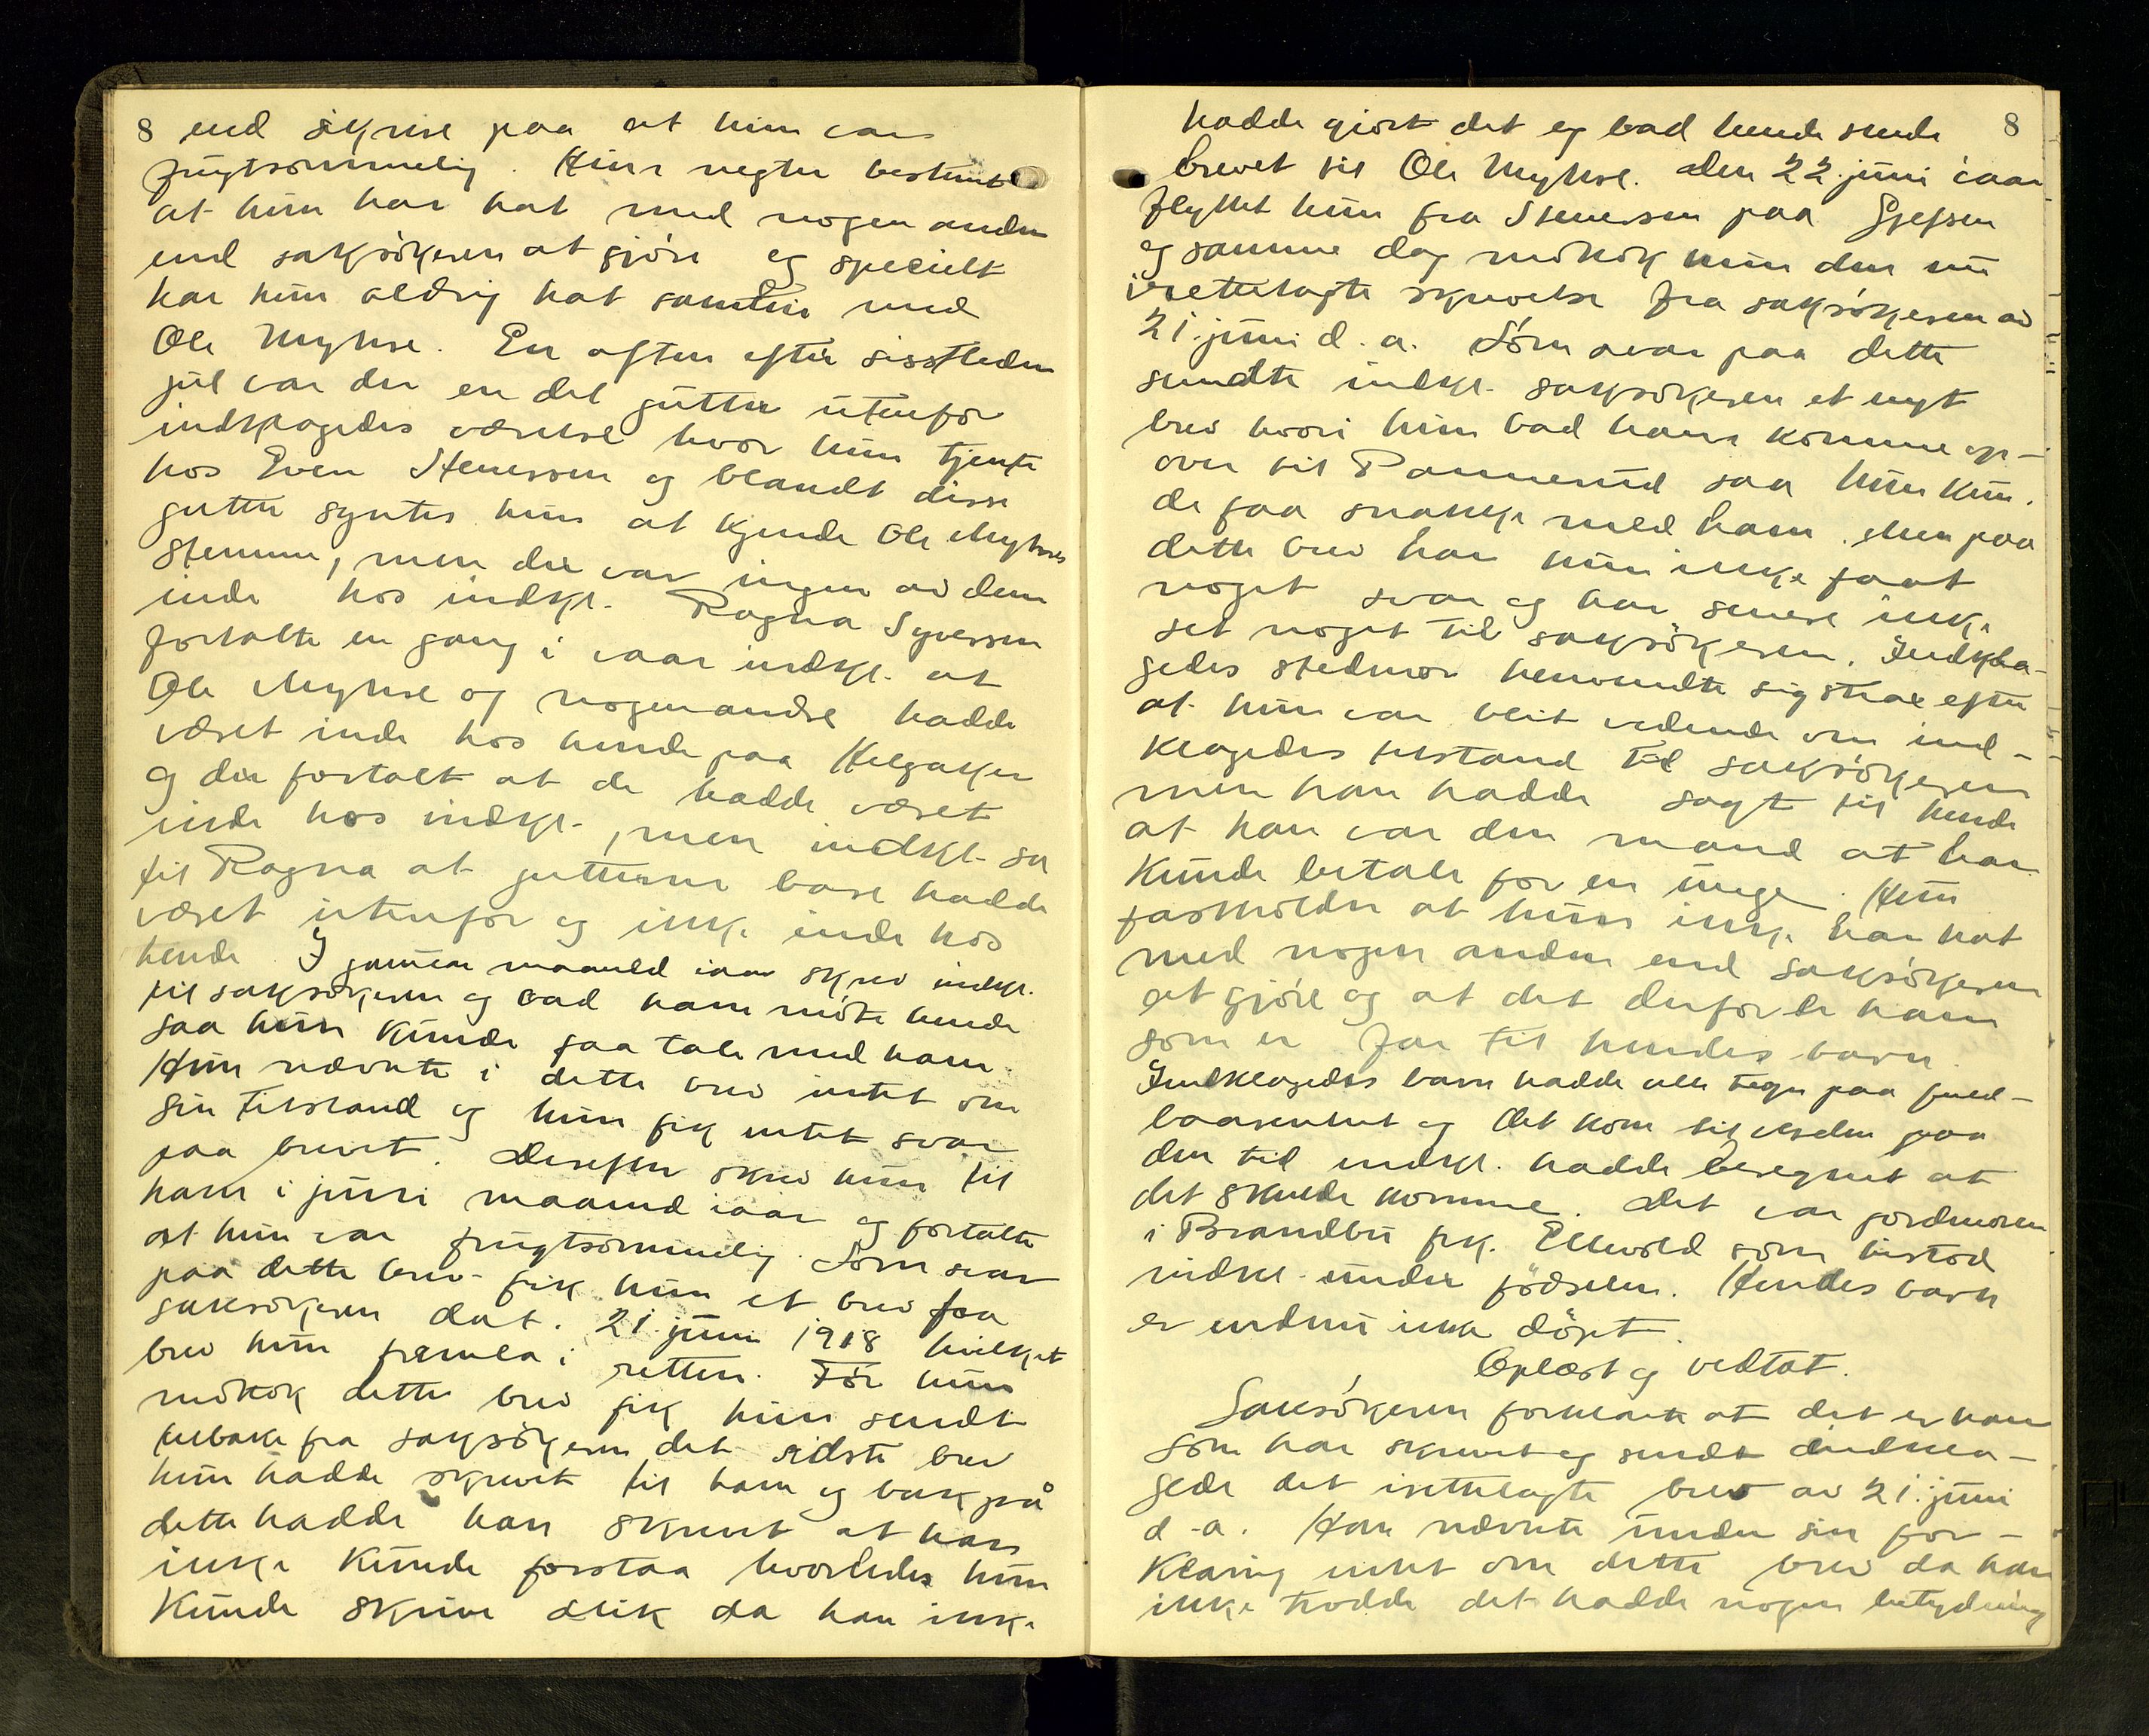 8 end sikrere paa at hun var
frugtsommelig. Hun negter bestemt
at hun har hat med nogen anden
end saksökeren at gjöre og specielt
har hun aldrig hat samleie med
Ole Myhre. En aften efter sisstleden
jul var der en del gutter utenfor
indklagedes værelse hvor hun tjente
hos Even Stenersen og blandt disse
gutter syntes hun at kjende Ole Myhres
stemme, men der var ingen av dem
inde hos indkl. Ragna Syversen
fortalte en gang i vaar indkl. at
Ole Myhre og nogen andre hadde
været inde hos hende paa Helgaker
og der fortalt at de hadde været
inde hos indkl., men indkl. sa
til Ragna at gutterne bare hadde
været utenfor og ikke inde hos
hende. I januar maaned iaar skrev indkl.
til saksökeren og bad ham möte hende
saa hun kunde faa tale med ham.
Hun nævnte i dette brev intet om
sin tilstand og hun fik intet svar
paa brevet. Derefter skrev hun til
ham i juni maaned iaar og fortalte
at hun var frugtsommelig. Som svar
paa dette brev fik hun et brev fra
saksökeren dat. 21. juni 1918 hvilket
brev hun fremla i retten. För hun
mottok dette brev fik hun sendt
tilbake fra saksökeren det sidste brev
hun hadde skrevet til ham og bak på
dette hadde han skrevet at han
ikke kunde forstaa hvorledes hun
kunde skrive slik da han ikke
hadde gjört det og bad hende sende 8
brevet til Ole Myhre. Den 22. juni iaar
flyttet hun fra Stenersen paa Gjefsen
og samme dag mottok hun den nu
irettelagte skrivelse fra saksökeren av
21. juni d.a. Som svar paa dette
sendte indkl. saksökeren et nyt
brev hvori hun bad ham komme op-
over til Pannerud saa hun kun-
de faa snakke med ham. Men paa
dette brev har hun ikke faat
noget svar og har senere ikke
set noget til saksökeren. Indkla-
gedes stedmor henvendte sig strax efter
at hun var blit vidende om ind-
klagedes tilstand til saksökeren
men han hadde sagt til hende
at han var den mand at han
kunde betale for en unge. Hun
fastholder at hun ikke har hat
med nogen anden end saksökeren
at gjöre og at det derfor er ham
som er far til hendes barn.
Indklagedes barn hadde alle tegn paa fuld-
baarenhet og det kom til verden paa
den tid indkl. hadde beregnet at
det skulde komme. Det var jordmoren
i Brandbu frk. Ellevold som bistod
indkl. under födselen. Hendes barn
er endnu ikke döpt.
Oplæst og vedtat.
Saksökeren forklarte at det er han
som har skrevet og sendt indkla-
gede det iretteagte brev av 21. juni
d.a. Han nævnte under sin for-
klaring intet om dette brev da han
ikke trodde det hadde nogen betydning